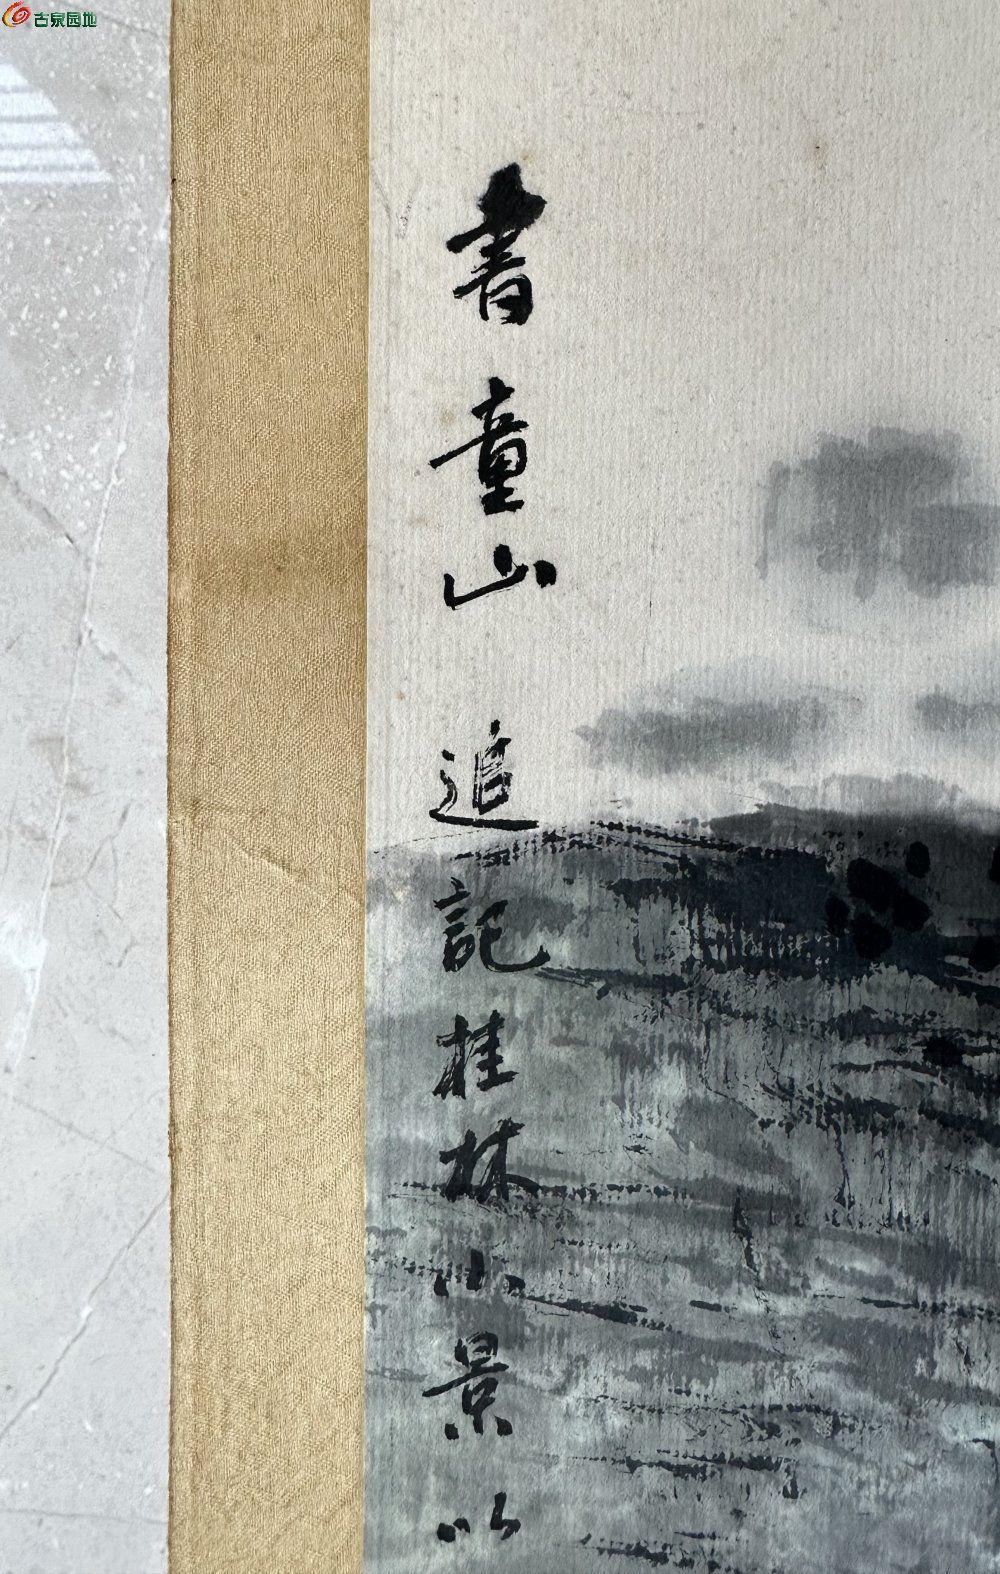 古泉园地
書童山 追記桂林小景以